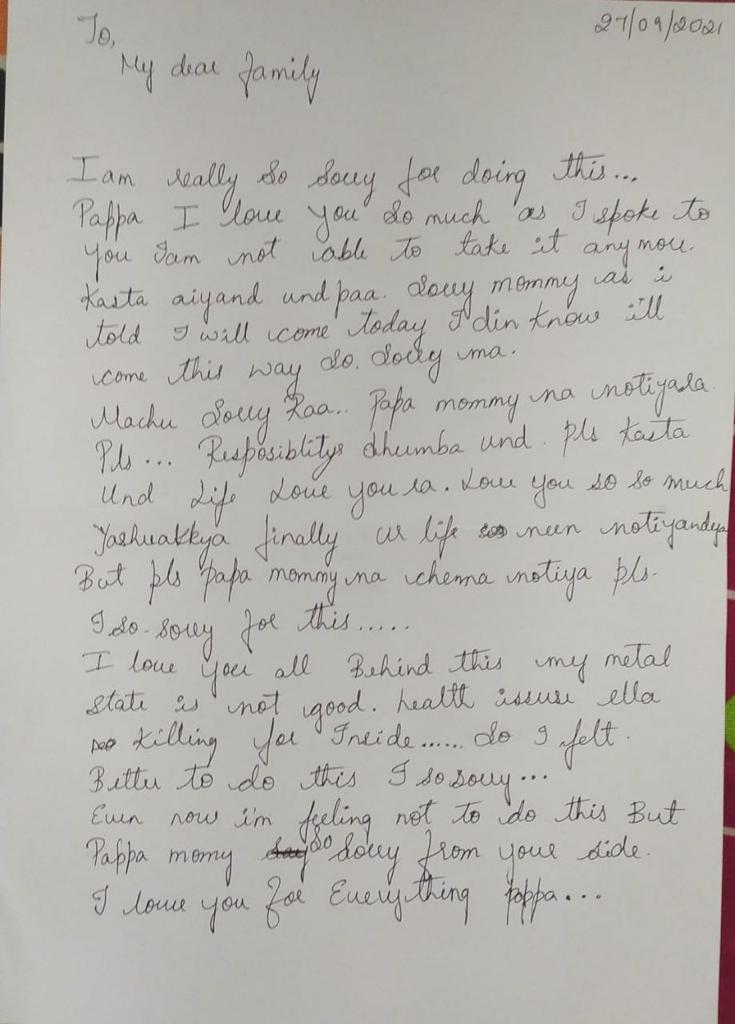 27/09/2021
To,
My dear family
I am really so sorry for doing this...
Pappa I love you so much as I spoke to
you Iam not able to take it anymore.
Kasta aiyand undpaa. Sorry mommy as i
told I will come today I din know i'll
come this way So. Sorry ma.
Machu Sorry Raa.. Papa mommy na notiyala.
Pls... Resposiblitys dhumba und. pls Kasta
Und Life Love you ra. Love you so so much
Yashuakkya finally ur life neen notiyandya
But pls papa mommy na chenna notiya pls.
I so. sorry for this.....
I love you all Behind this my metal
state is not good. health issuse ella
Killing for Inside...... So I felt.
Better to do this I so sorry...
Even now i'm feeling not to do this But
Pappa momy So Sorry from your side.
I love you for Everything pappa...